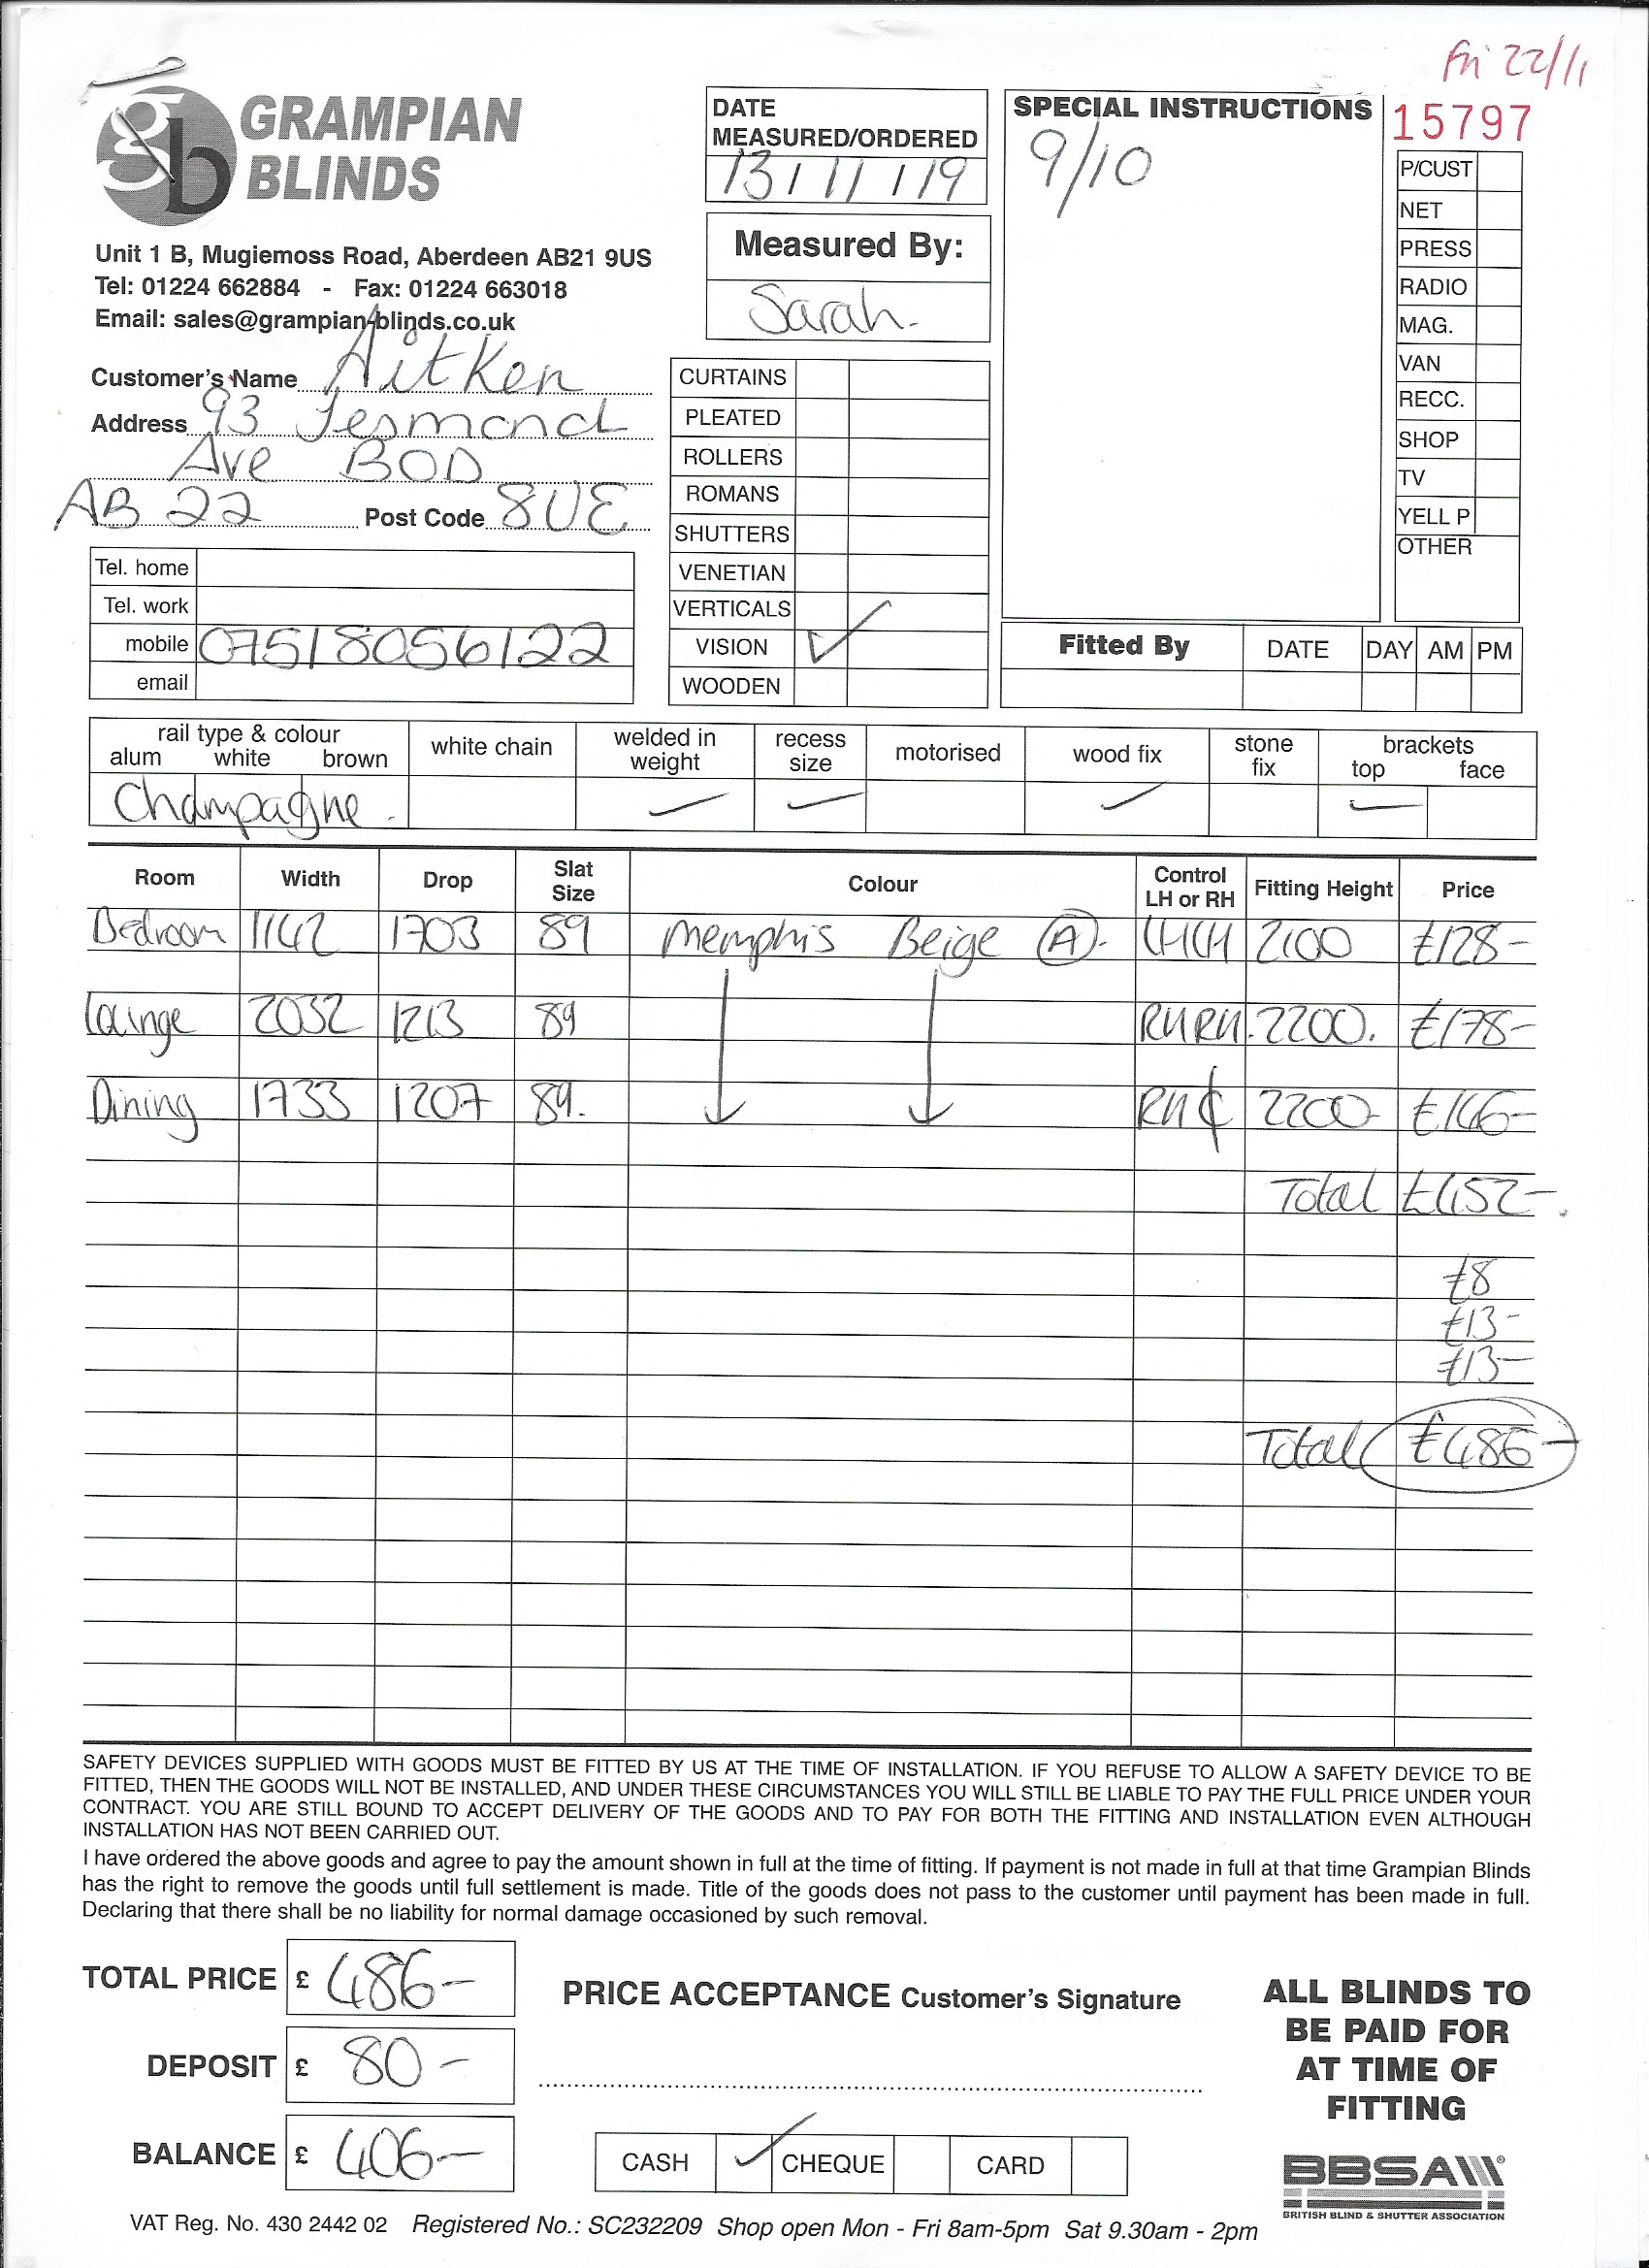 Fri 22/11
GRAMPIAN
BLINDS
Unit 1 B, Mugiemoss Road, Aberdeen AB21 9US
Tel: 01224 662884 - Fax: 01224 663018
Email: sales@grampian-blinds.co.uk
Customer's Name Aitken
Address 93 Jesmond
Ave BOD
AB 22 Post Code 8UE
Tel. home
Tel. work
mobile 07518056122
email
DATE
MEASURED/ORDERED
13/11/19
Measured By:
Sarah.
CURTAINS
PLEATED
ROLLERS
ROMANS
SHUTTERS
VENETIAN
VERTICALS
VISION ✓
WOODEN
SPECIAL INSTRUCTIONS
9/10
15797
P/CUST
NET
PRESS
RADIO
MAG.
VAN
RECC.
SHOP
TV
YELL P
OTHER
Fitted By DATE DAY AM PM
rail type & colour white chain welded in weight recess size motorised wood fix stone fix brackets
alum white brown top face
Champagne. ✓ ✓ ✓ ✓
Room Width Drop Slat Size Colour Control LH or RH Fitting Height Price
Bedroom 1142 1703 89 Memphis Beige (A). LHLH 2100 £128-
Lounge 2032 1213 89 RHRH. 2200. £178-
Dining 1733 1207 89. RH₵ 2200- £146-
Total £452-.
£8
£13-
£13-
Total £486-
SAFETY DEVICES SUPPLIED WITH GOODS MUST BE FITTED BY US AT THE TIME OF INSTALLATION. IF YOU REFUSE TO ALLOW A SAFETY DEVICE TO BE
FITTED, THEN THE GOODS WILL NOT BE INSTALLED, AND UNDER THESE CIRCUMSTANCES YOU WILL STILL BE LIABLE TO PAY THE FULL PRICE UNDER YOUR
CONTRACT. YOU ARE STILL BOUND TO ACCEPT DELIVERY OF THE GOODS AND TO PAY FOR BOTH THE FITTING AND INSTALLATION EVEN ALTHOUGH
INSTALLATION HAS NOT BEEN CARRIED OUT.
I have ordered the above goods and agree to pay the amount shown in full at the time of fitting. If payment is not made in full at that time Grampian Blinds
has the right to remove the goods until full settlement is made. Title of the goods does not pass to the customer until payment has been made in full.
Declaring that there shall be no liability for normal damage occasioned by such removal.
TOTAL PRICE £ 486-
DEPOSIT £ 80-
BALANCE £ 406-
PRICE ACCEPTANCE Customer's Signature
CASH ✓ CHEQUE CARD
ALL BLINDS TO
BE PAID FOR
AT TIME OF
FITTING
BBSA
BRITISH BLIND & SHUTTER ASSOCIATION
VAT Reg. No. 430 2442 02 Registered No.: SC232209 Shop open Mon - Fri 8am-5pm Sat 9.30am - 2pm